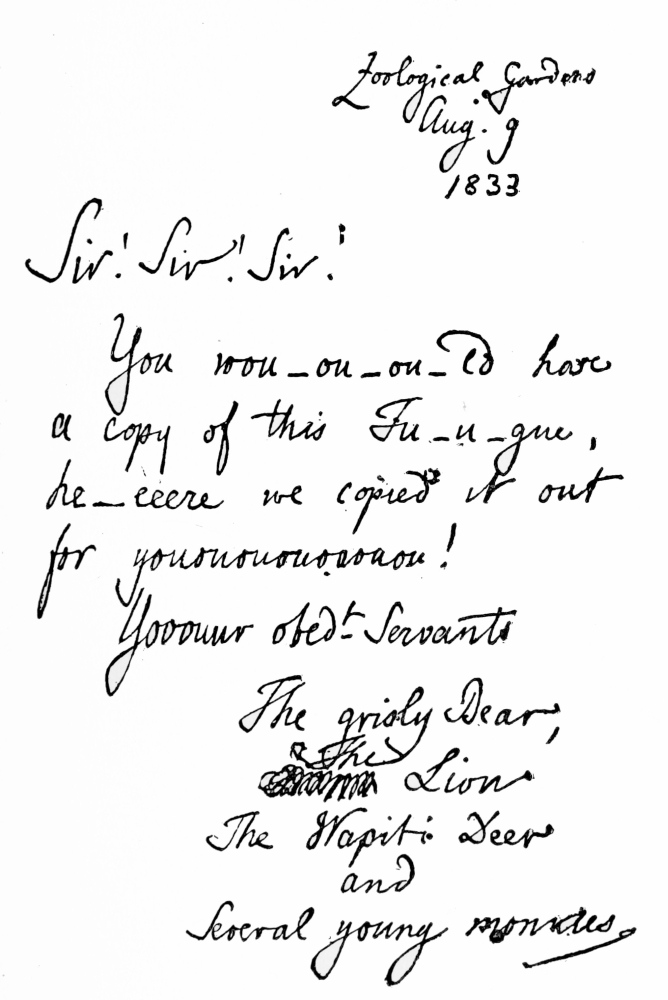 Zoological Gardens
Aug. 9
1833
Sir! Sir! Sir!
You wou-ou-ou-ld have
a copy of this Fu-u-gue,
he-eeere we copied it out
for yououououououou!
Yooouur obedt Servants
The grisly Bear,
The
Lion
The Wapiti Deer
and
Several young monkies